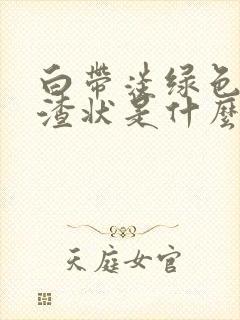 白带淡绿色
渣状是什麼
天庭女官